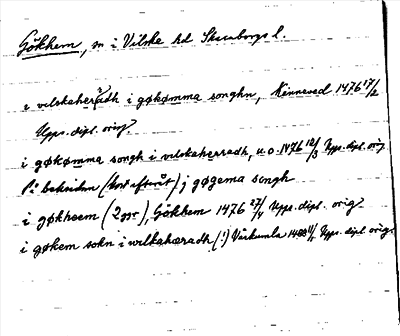 Gökhem, sn i Vilske hd Skaraborgs l.
i vilskaheradh i gøkømma songhn, Kinneved 1476 17/2
Upps. dipl. orig.
i gøkømma songh i vilskaherradh, u.o. 1476 12/3 Upps. dipl. orig
På baksidan ( ) j gøgema songh
i gøkheem (2 ggr), Gökhem 1476 27/4 Upps. dipl. orig
i gøkem sokn i wilkahæradh (!) Vårkumla Upps. dipl. orig.